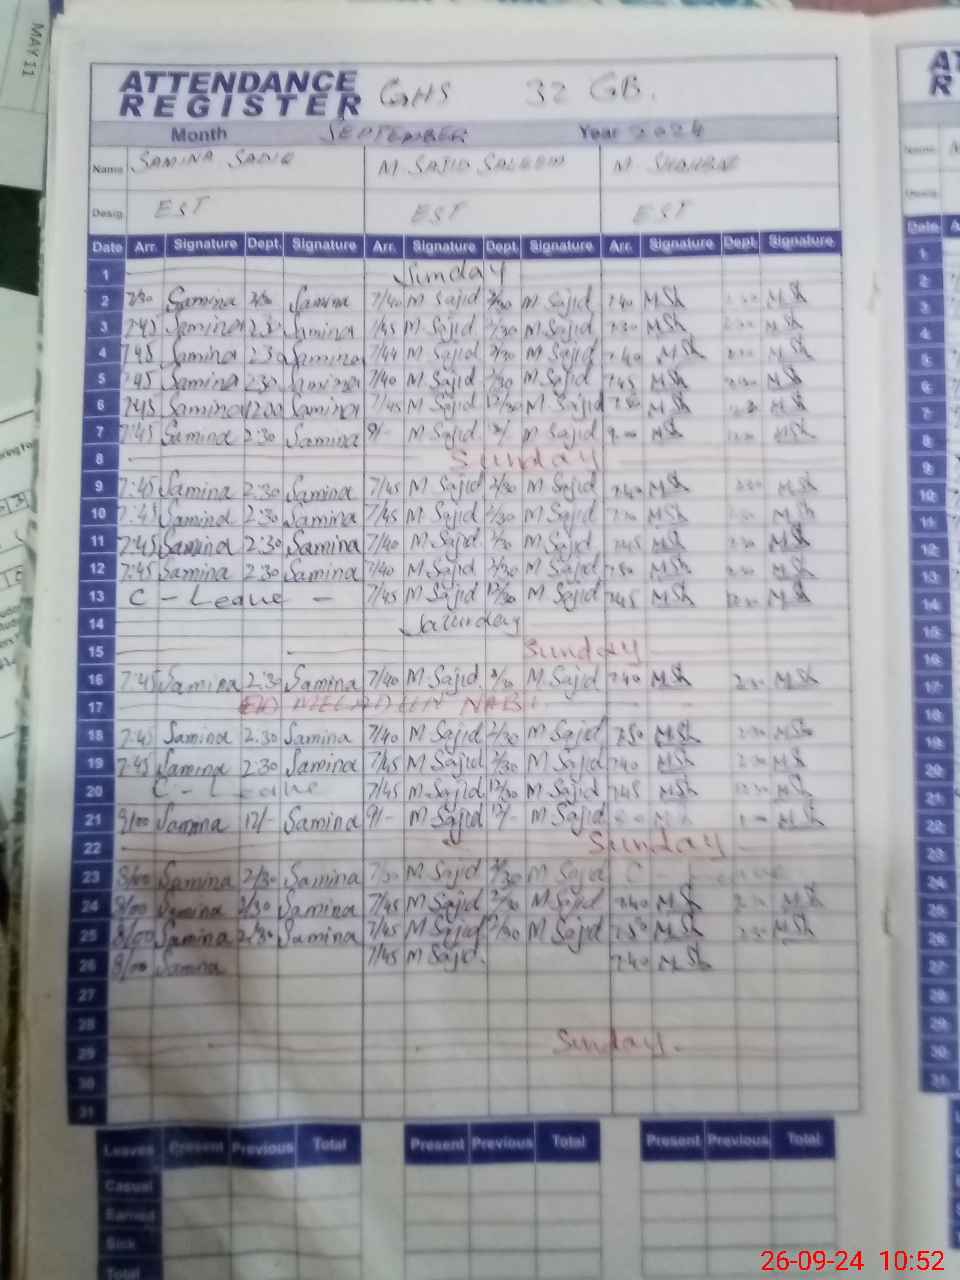 MAY 11
ATTENDANCE
REGISTER GHS 32 GB.
Month SEPTEMBER Year 2024
Name SAMINA SADIQ M. SAJID SALEEM M.
Desig. EST EST EST
Date Arr. Signature Dept. Signature Arr. Signature Dept. Signature Arr. Signature Dept. Signature
1 Sunday
2 7/30 Samina 2/30 Samina 7/40 M Sajid 2/30 M Sajid 7:40 M Sh M Sh
3 7:45 Samina 2:30 Samina 7/45 M Sajid 2/30 M Sajid 7:30 M Sh M Sh
4 7:45 Samina 2:30 Samina 7/44 M Sajid 2/30 M Sajid 7:40 M Sh M Sh
5 7:45 Samina 2:30 Samina 7/40 M Sajid 2/30 M Sajid 7:45 M Sh M Sh
6 7:45 Samina 12:30 Samina 7/45 M Sajid 12/30 M Sajid M Sh M Sh
7 7:45 Samina 2:30 Samina 9/- M Sajid M Sajid M Sh M Sh
8 Sunday
9 7:45 Samina 2:30 Samina 7/45 M Sajid 2/30 M Sajid 7:40 M Sh M Sh
10 7:45 Samina 2:30 Samina 7/45 M Sajid 2/30 M Sajid M Sh M Sh
11 7:45 Samina 2:30 Samina 7/40 M Sajid 2/30 M Sajid 7:45 M Sh M Sh
12 7:45 Samina 2:30 Samina 7/40 M Sajid 2/30 M Sajid 7:50 M Sh M Sh
13 C - Leave - 7/45 M Sajid 12/30 M Sajid 7:45 M Sh M Sh
14 Saturday
15 Sunday
16 7:45 Samina 2:30 Samina 7/40 M Sajid 2/30 M Sajid 7:40 M Sh 2:30 M Sh
17 EID MEELAD EEN NABI
18 7:45 Samina 2:30 Samina 7/40 M Sajid 2/30 M Sajid 7:50 M Sh 2:30 M Sh
19 7:45 Samina 2:30 Samina 7/45 M Sajid 2/30 M Sajid 7:40 M Sh 2:30 M Sh
20 C - Leave 7/45 M Sajid 12/30 M Sajid 7:45 M Sh 12:30 M Sh
21 9/00 Samina 12/- Samina 9/- M Sajid 12/- M Sajid M Sh M Sh
22 Sunday
23 8/00 Samina 2/30 Samina 7/30 M Sajid 2/30 M Sajid C Leave
24 8/00 Samina 2/30 Samina 7/45 M Sajid 2/30 M Sajid 7:40 M Sh M Sh
25 8/00 Samina 2/30 Samina 7/45 M Sajid 2/30 M Sajid 7:50 M Sh 2:30 M Sh
26 8/00 Samina 7/45 M Sajid. 7:40 M Sh
27
28
29 Sunday.
30
31
Leaves Present Previous Total Present Previous Total Present Previous Total
Casual
Earned
Sick
Total
26-09-24 10:52